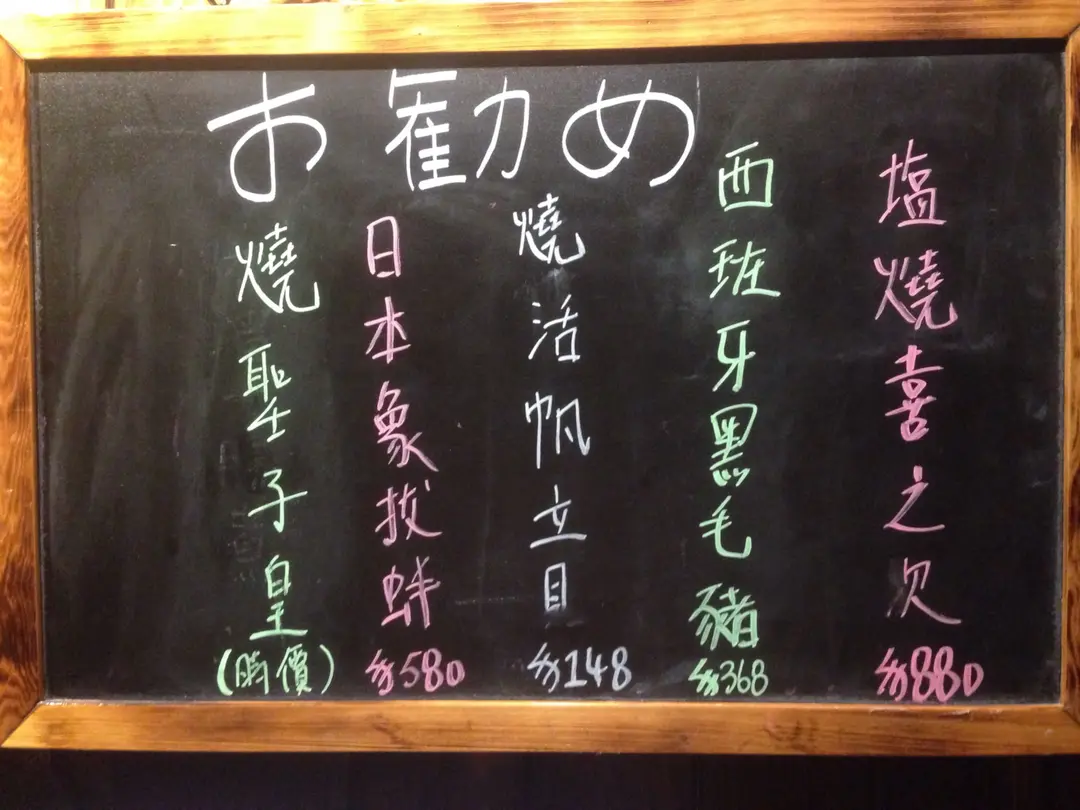 お勧め
塩燒喜之次 $880
西班牙黑毛豬 $368
燒活帆立貝 $148
日本象拔蚌 $580
燒聖子皇 (時價)